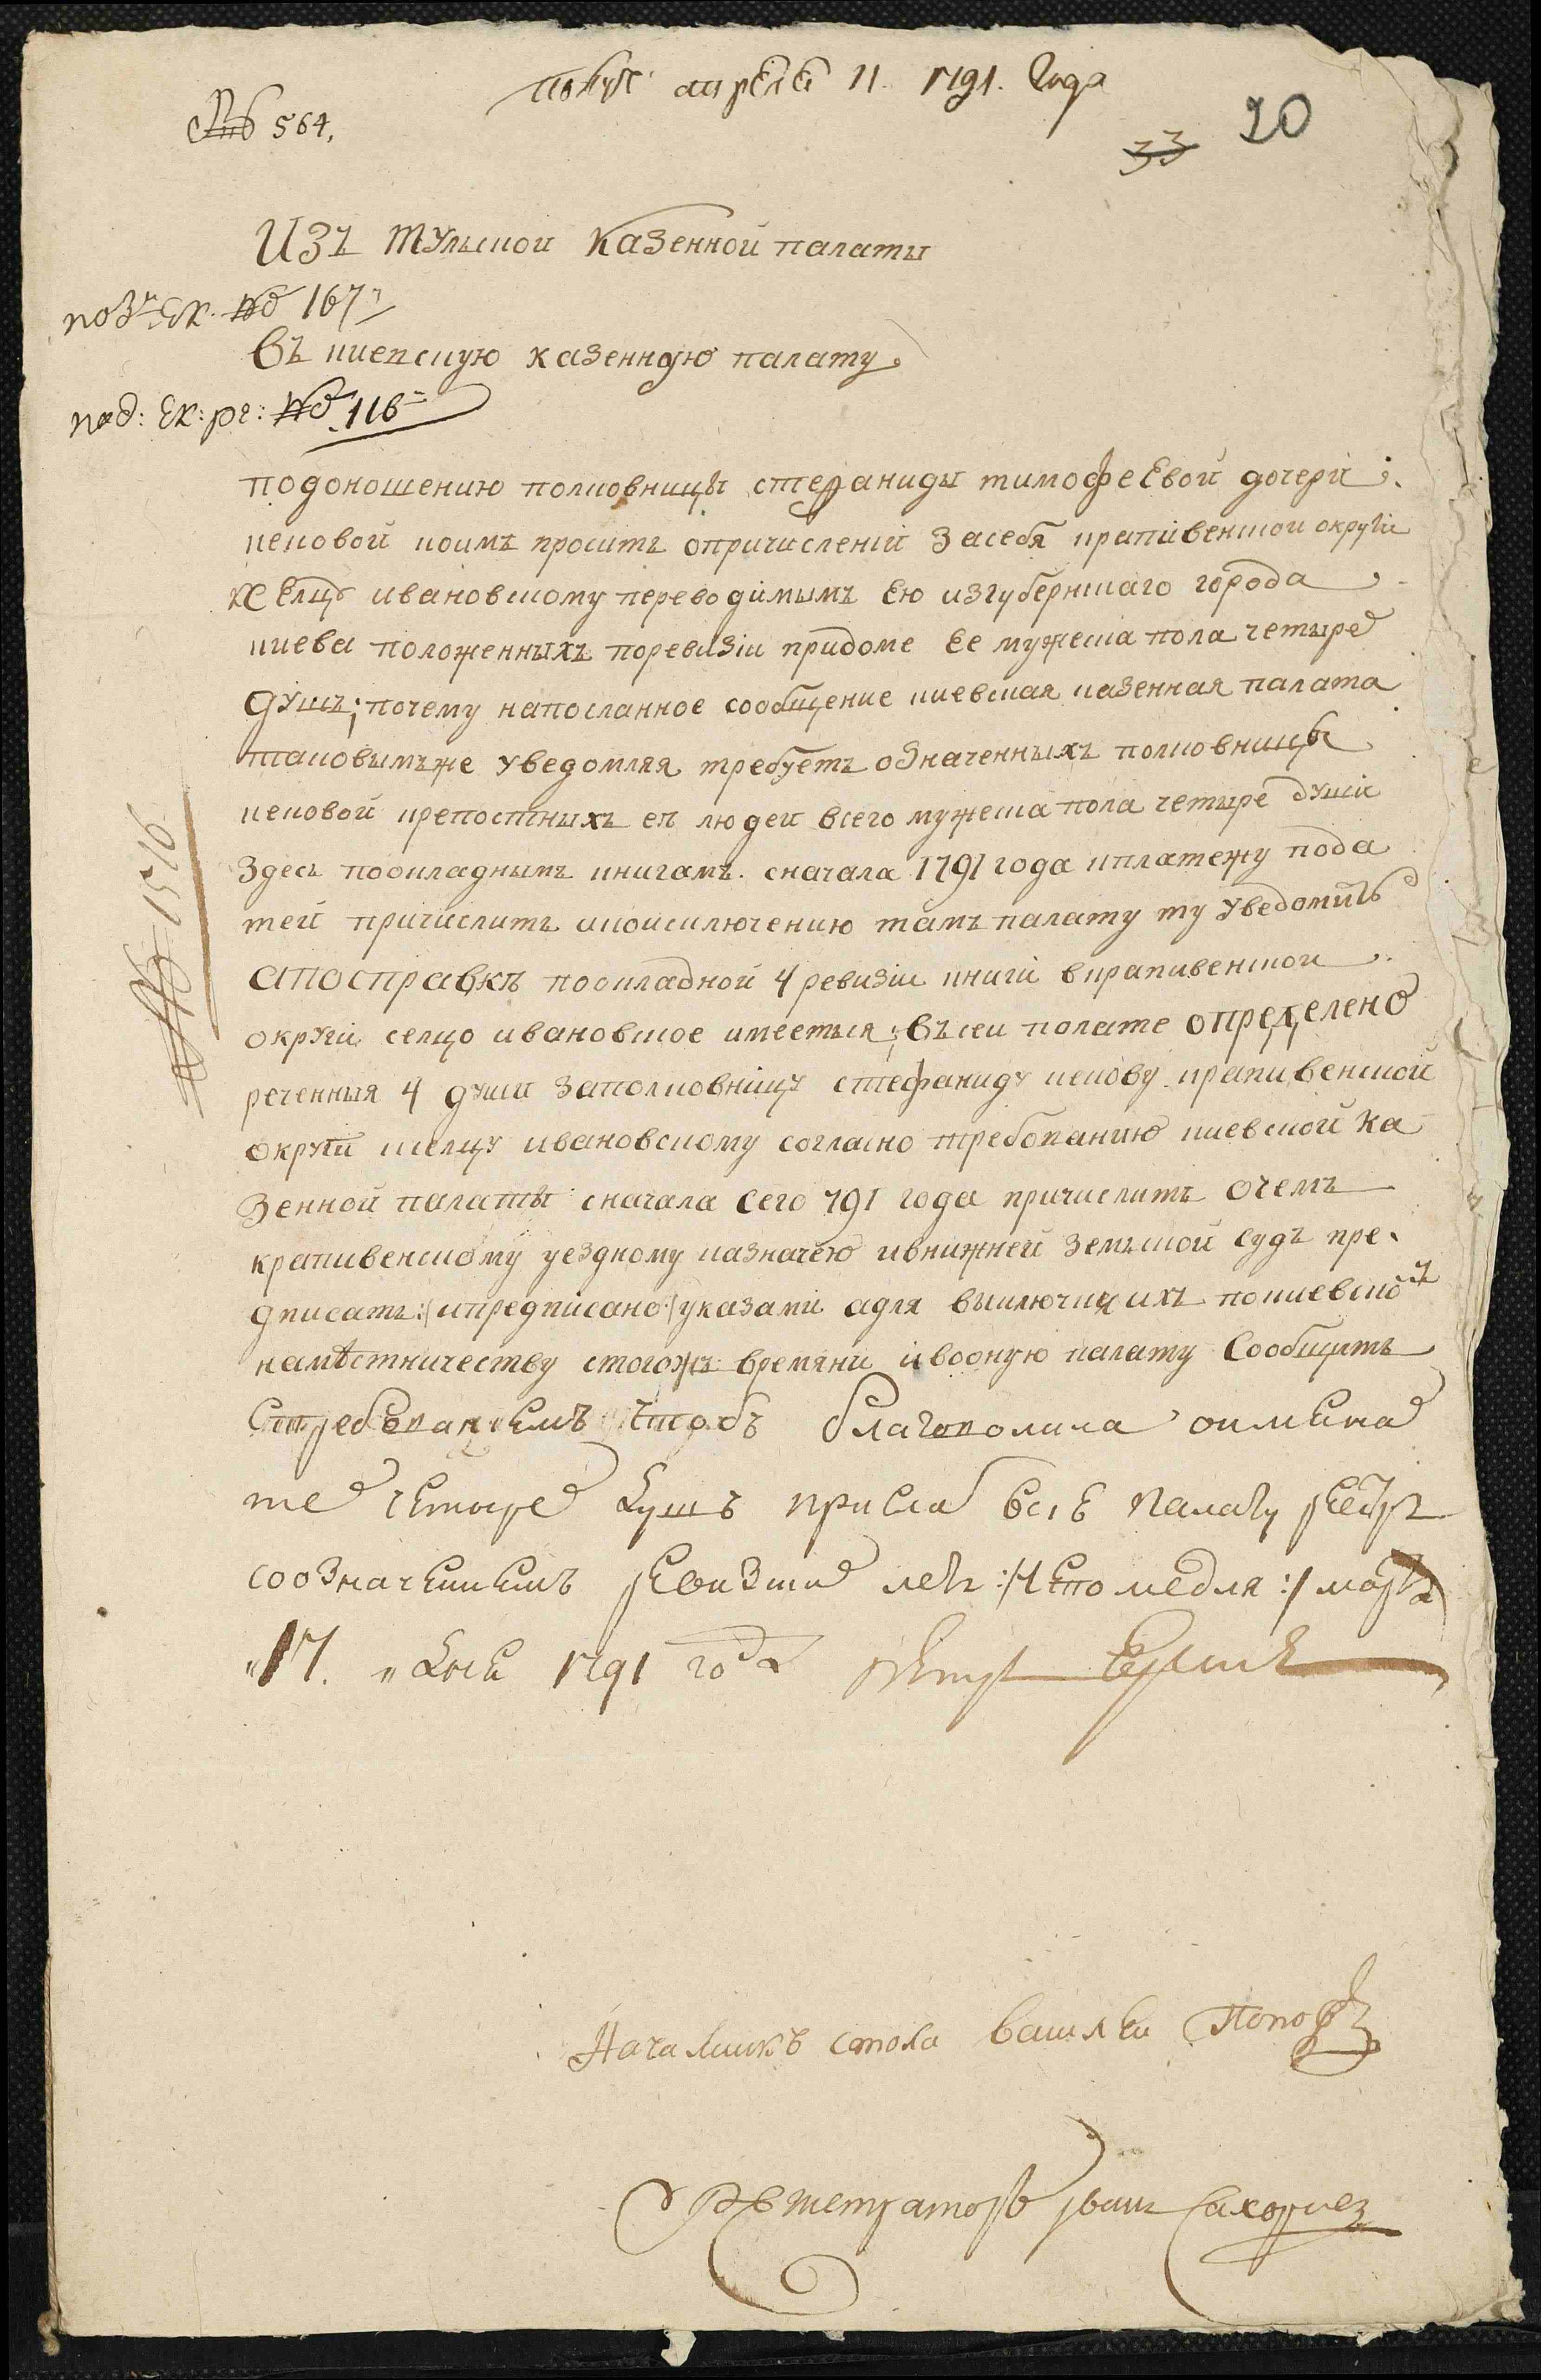 № 564.
апреля 11. 1791. Года
33 20
Изъ тульской казенной палаты
№ 167
въ киевскую казенную палату
под: Ек: ре: № 116
подоношению полковницы стефаниды тимофеевой дочери
нековой коимъ просить опричислении засебя крапивенской округи
кселцу ивановскому переводимымъ Ею изгубернскаго города
киева положенныхъ поревизии придоме Ее мужеска пола четыре
душъ; почему напосланное сообщение киевская казенная палата
таковымъже уведомляя требуетъ означенныхъ полковницы
нековой крепостныхъ ея людей всего мужеска пола четыре души
здесь поокладнымъ книгамъ. сначала 1791 года кплатежу пода
тей причислить ипоисключению тамъ палату ту уведомить
апосправкъ поокладной 4 ревизии книги вкрапивенской
округи селцо ивановское имеетьця; въсей полате определено
реченныя 4 души заполковницу стефаниду некову крапивенской
округи кселцу ивановскому согласно требованию киевской ка
зенной палаты сначала сего 791 года причислить очемъ
крапивенскому уездному казначею ивнижней земской судъ пре
дписать :/ ипредписано /: указами адля выключки ихъ покиевско^й
наместничеству стогожъ времяни ивооную палату сообщить
стребованиемъ чтобъ благоволила оимена
те четыре душъ прислать всiе палату реестръ
соозначениемъ ревизские летъ :/ непомедля :/ марта
„17. „ дня 1791 года
№ 1576
Началникъ стола василеи Поповъ
Регистраторъ иванъ